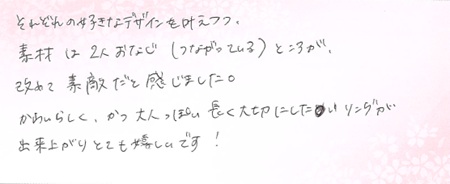 それぞれの好きなデザインを叶えつつ。
素材は2人おなじ（つながっている）ところが、
改めて素敵だと感じました。
かわいらしく、かつ大人っぽい長く大切にしたいリングが
出来上がりとても嬉しいです！